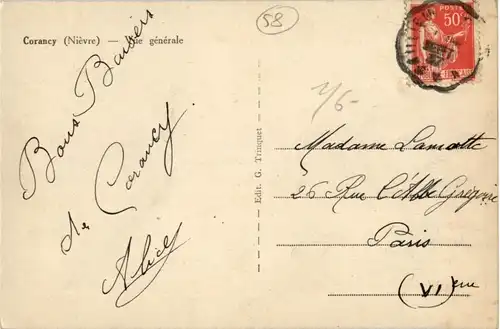 58
POSTES
50c
Corancy (Nièvre) — Vue générale
1/6-
Bons Baisers
de Corancy
Alice
Edit. G. Trinquet
Madame Lamotte
26 Rue l'Abbé Grégoire
Paris
(VI) eme